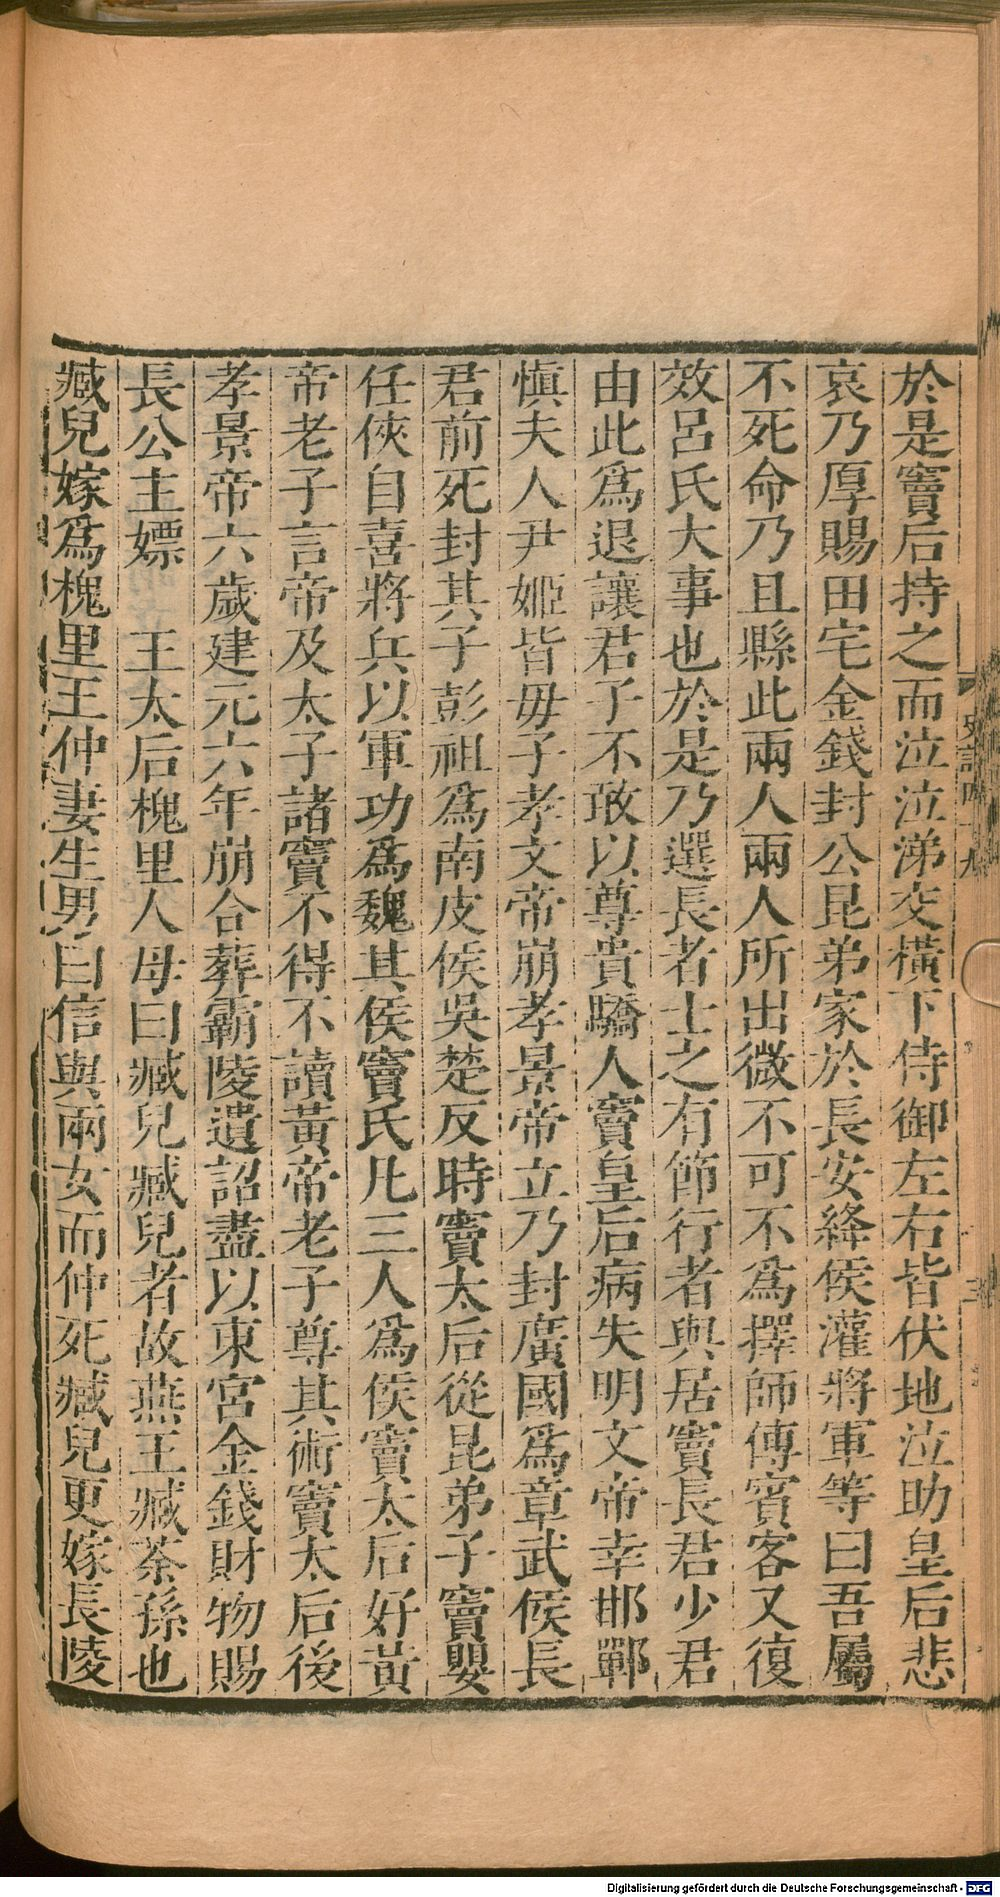 於是竇后持之而泣泣涕交橫下侍御左右皆伏地泣助皇后悲
哀乃厚賜田宅金錢封公昆弟家於長安絳侯灌將軍等曰吾屬
不死命乃且縣此兩人兩人所出微不可不爲擇師傅賓客又復
效呂氏大事也於是乃選長者士之有節行者與居竇長君少君
由此爲退讓君子不敢以尊貴驕人竇皇后病失明文帝幸邯鄲
愼夫人尹姬皆毋子孝文帝崩孝景帝立乃封廣國爲章武侯長
君前死封其子彭祖爲南皮侯吳楚反時竇太后從昆弟子竇嬰
任俠自喜將兵以軍功爲魏其侯竇氏凡三人爲侯竇太后好黃
帝老子言帝及太子諸竇不得不讀黃帝老子尊其術竇太后後
孝景帝六歲建元六年崩合葬霸陵遺詔盡以東宮金錢財物賜
長公主嫖　王太后槐里人母曰臧兒臧兒者故燕王臧荼孫也
臧兒嫁爲槐里王仲妻生男曰信與兩女而仲死臧兒更嫁長陵
史記四十九
三
Digitalisierung gefördert durch die Deutsche Forschungsgemeinschaft - DFG